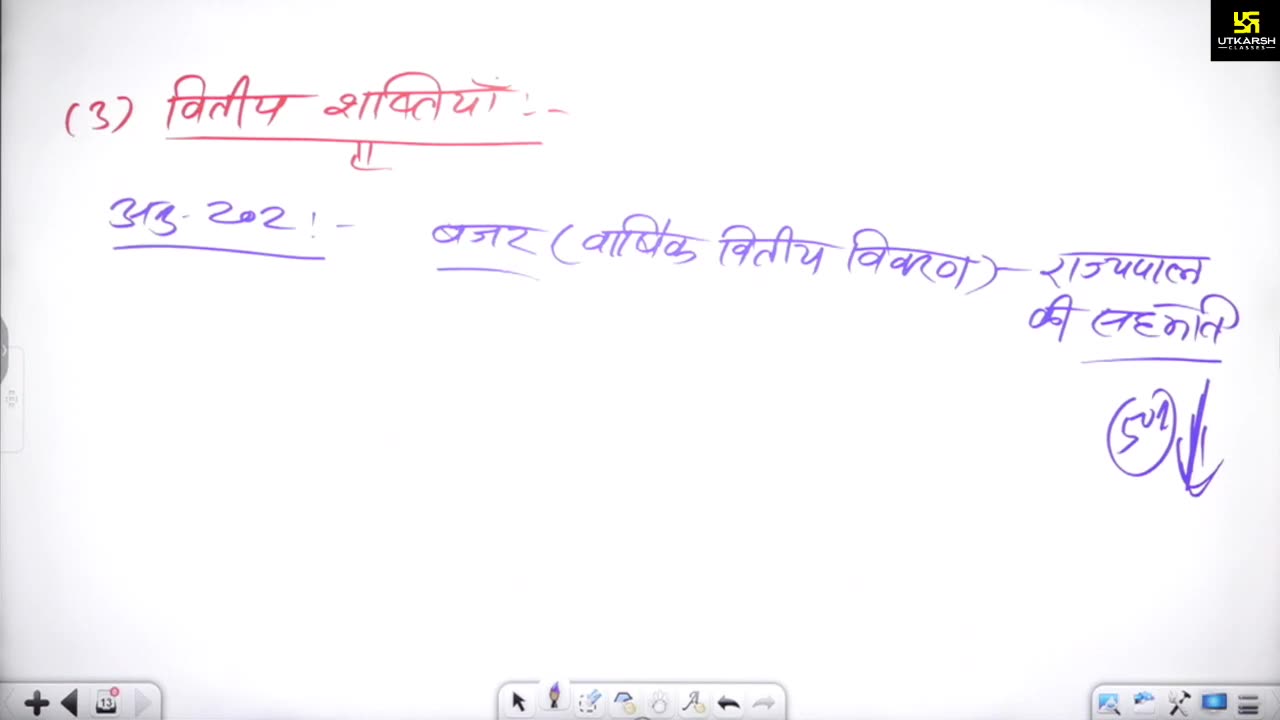 UTKARSH
CLASSES
(3) वित्तीय शक्तियाँ :-
अनु. 202 :-
बजट (वार्षिक वित्तीय विवरण) - राज्यपाल
की सहमति
13